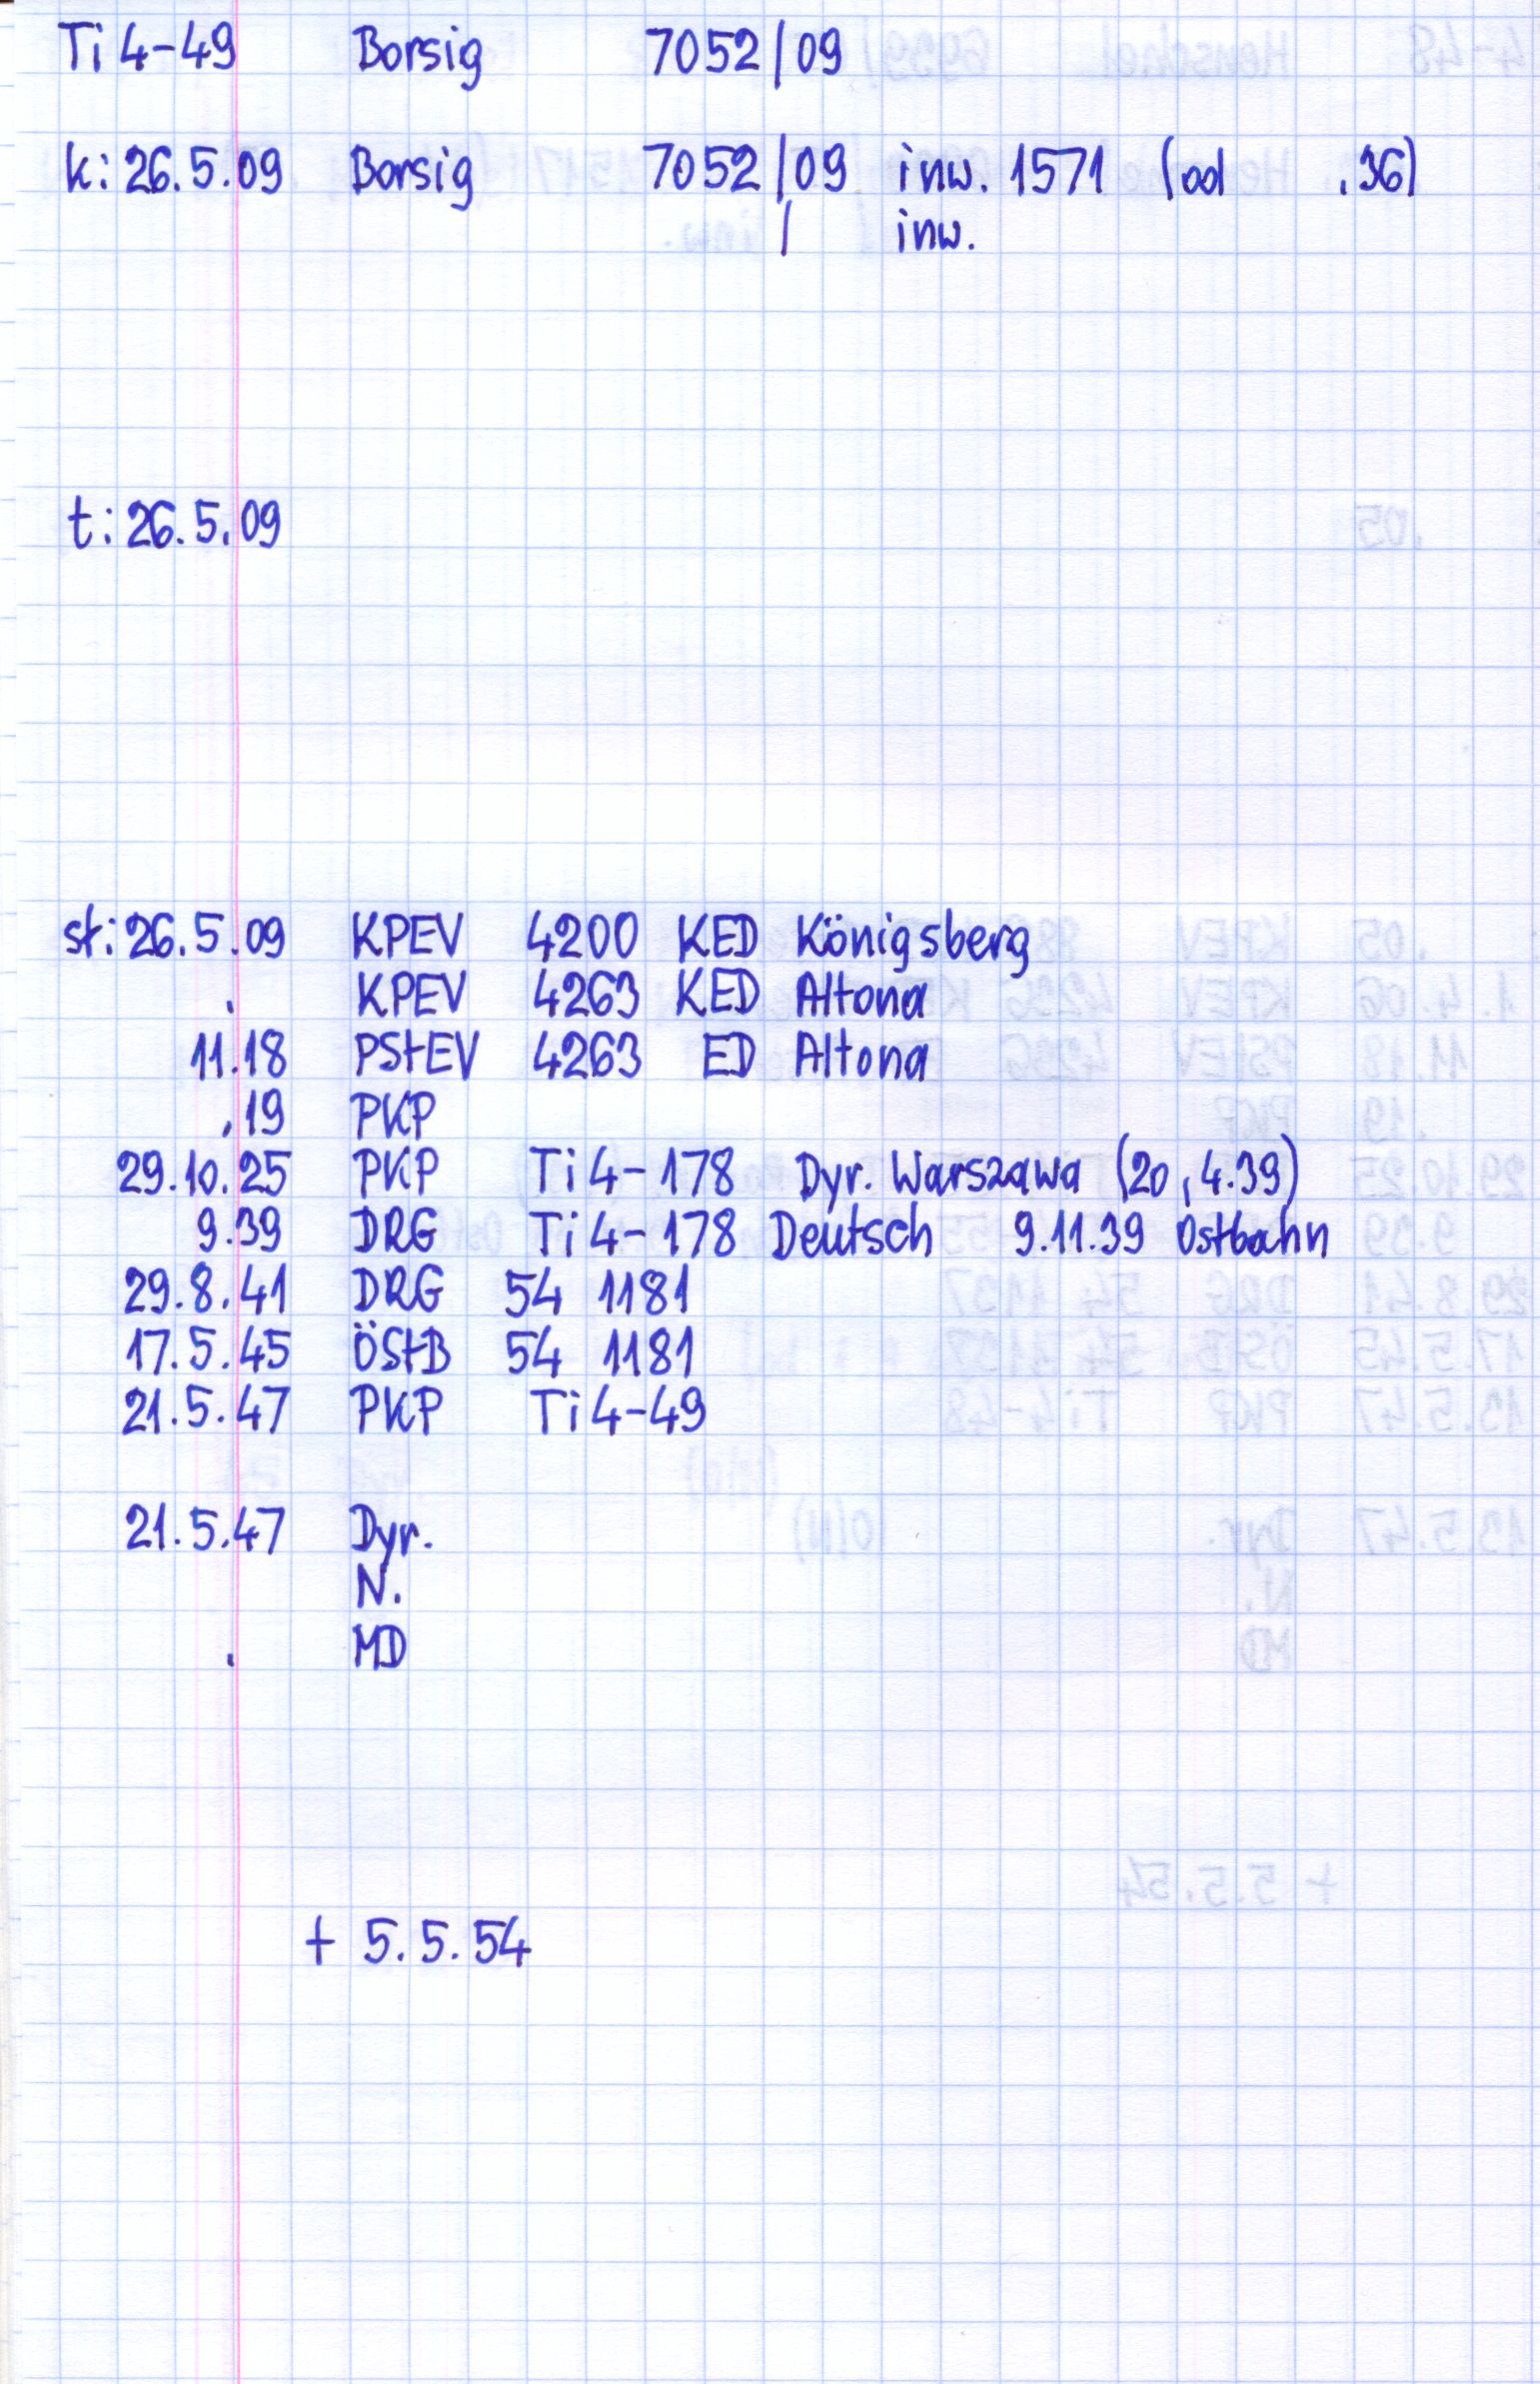 Ti 4-49 Borsig 7052/09
k: 26.5.09 Borsig 7052/09 inw. 1571 (od .36)
/ inw.
t: 26.5.09
st: 26.5.09 KPEV 4200 KED Königsberg
. KPEV 4263 KED Altona
11.18 PStEV 4263 ED Altona
.19 PKP
29.10.25 PKP Ti 4-178 Dyr. Warszawa (20, 4.39)
9.39 DRG Ti 4-178 Deutsch 9.11.39 Ostbahn
29.8.41 DRG 54 1181
17.5.45 ÖStB 54 1181
21.5.47 PKP Ti 4-49
21.5.47 Dyr.
N.
. MD
+ 5.5.54